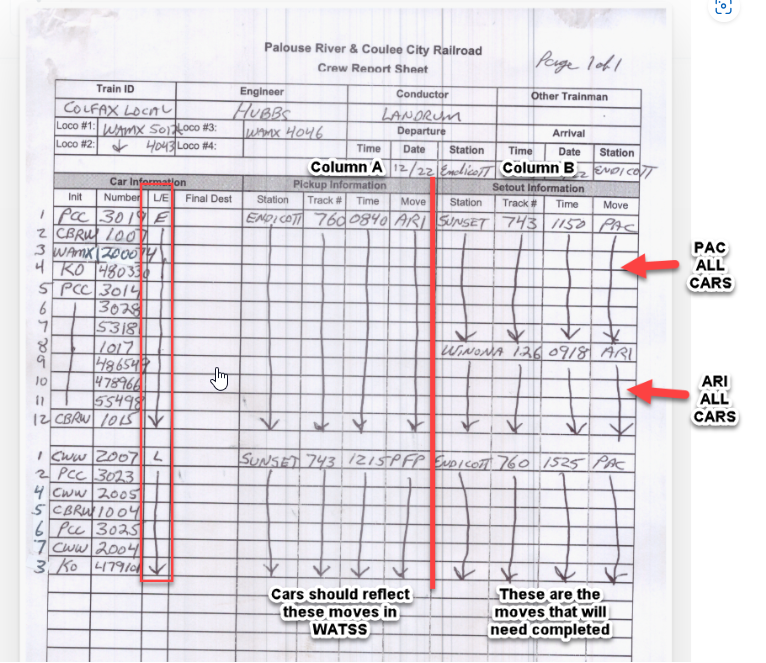 Palouse River & Coulee City Railroad
Page 1 of 1
Crew Report Sheet
Train ID Engineer Conductor Other Trainman
COLFAX LOCAL HUBBS LANDRUM
Loco #1: WAMX Loco #3: WAMX 4046 Departure Arrival
Loco #2: 4043 Loco #4: Time Date Station Time Date Station
Column A 12/22 Endicott Column B ENDICOTT
Car Information Pickup Information Setout Information
Init Number L/E Final Dest Station Track # Time Move Station Track # Time Move
1 PCC 3019 E ENDICOTT 760 0840 ARI SUNSET 743 1150 PAC
2 CBRW 1007
3 WAMX
4 KO 480330
5 PCC 3014
6 3028
7 5318
8 1017 WINONA 126 0918 ARI
9 486549
10 478966
11 55498
12 CBRW 1015
1 CWW 2007 L SUNSET 743 1215 PFP ENDICOTT 760 1525 PAC
2 PCC 3023
4 CWW 2005
5 CBRW 1004
6 PCC 3025
7 CWW 2004
3 KO
PAC
ALL
CARS
ARI
ALL
CARS
Cars should reflect
these moves in
WATSS
These are the
moves that will
need completed